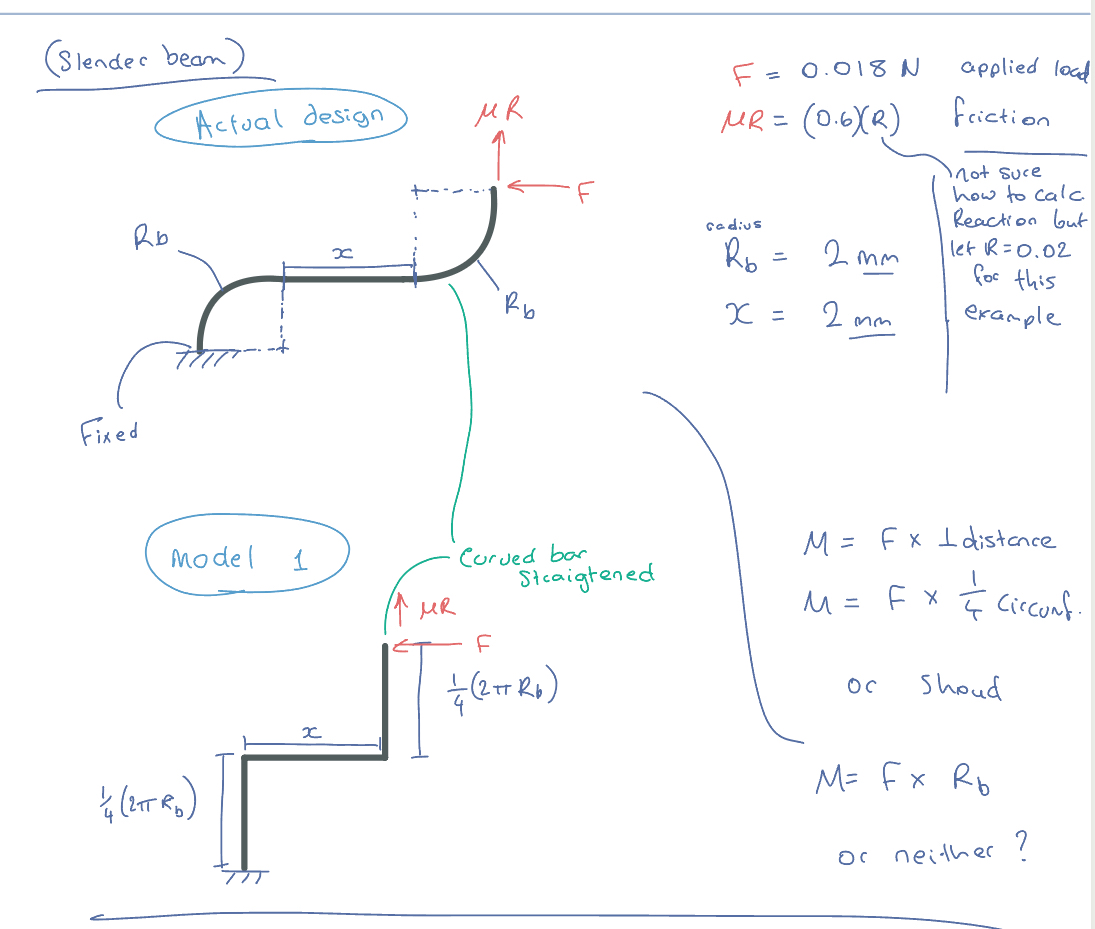 (Slender beam)
Actual design
μR
F
Rb
x
Rb
Fixed
F = 0.018 N applied load
μR = (0.6)(R) friction
not sure
how to calc
Reaction but
let R=0.02
for this
example
radius
Rb = 2 mm
x = 2 mm
Model 1
Curved bar
Straigtened
μR
F
1/4 (2πRb)
x
1/4 (2πRb)
M = F × ⊥distance
M = F × 1/4 Circumf.
or shoud
M= F × Rb
or neither ?